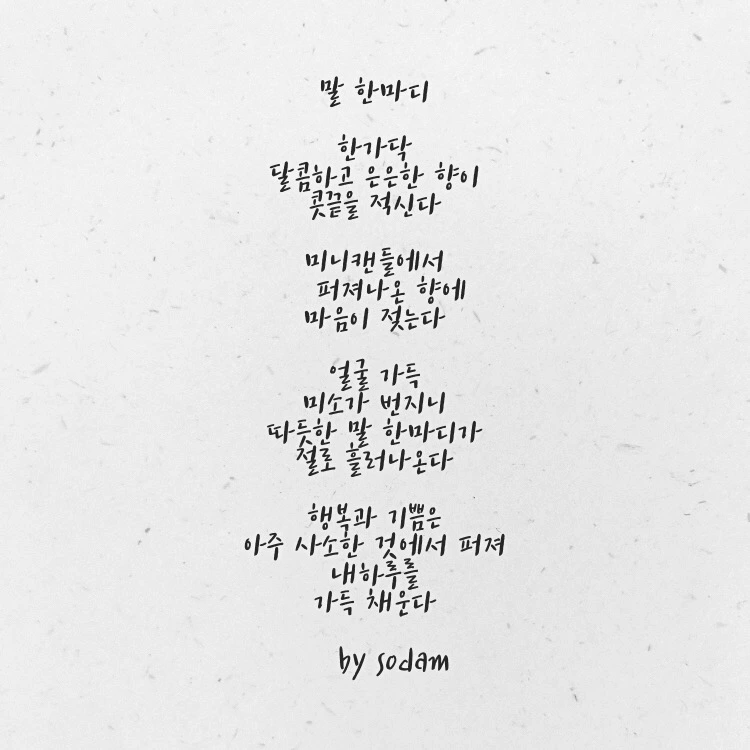 말 한마디
한가닥
달콤하고 은은한 향이
콧끝을 적신다
미니캔들에서
퍼져나온 향에
마음이 젖는다
얼굴 가득
미소가 번지니
따듯한 말 한마디가
절로 흘러나온다
행복과 기쁨은
아주 사소한 것에서 퍼져
내하루를
가득 채운다
by sodam